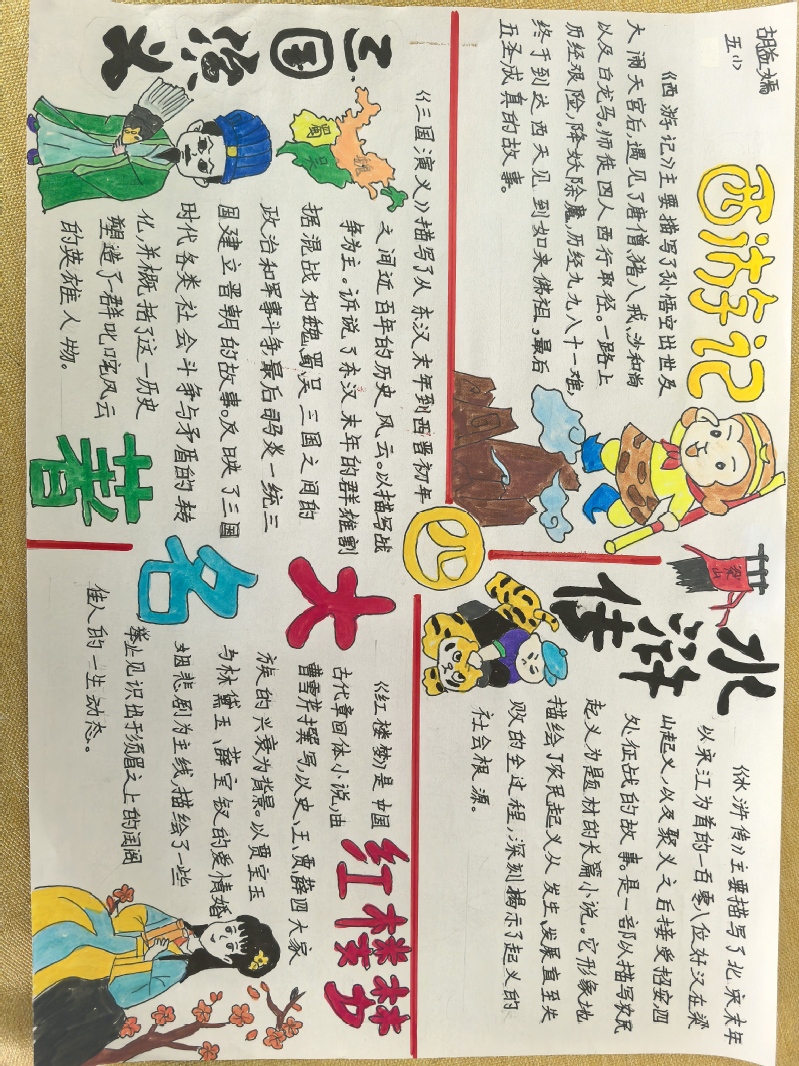 五小
西游记
《西游记》主要描写了孙悟空出世及
大闹天宫后,遇见了唐僧、猪八戒、沙和尚
以及白龙马。师徒四人西行取经。一路上
历经艰险,降妖除魔,历经九九八十一难,
终于到达西天见到如来佛祖,最后
五圣成真的故事。
梁山
水浒传
《水浒传》主要描写了北宋末年
以宋江为首的一百零八位好汉在梁
山起义,以及聚义之后接受招安四
处征战的故事。是一部以描写农民
起义为题材的长篇小说。它形象地
描绘了农民起义从发生、发展直至失
败的全过程,深刻揭示了起义的
社会根源。
四大名著
三国演义
魏
蜀
吴
《三国演义》描写了从东汉末年到西晋初年
之间近百年的历史风云。以描写战
争为主。诉说了东汉末年的群雄割
据混战和魏、蜀、吴三国之间的
政治和军事斗争,最后司马炎一统三
国建立晋朝的故事。反映了三国
时代各类社会斗争与矛盾的转
化,并概括了这一历史
塑造了一群叱咤风云
的英雄人物。
红楼梦
《红楼梦》是中国
古代章回体小说,由
曹雪芹撰写,以史、王、贾、薛四大家
族的兴衰为背景。以贾宝玉
与林黛玉、薛宝钗的爱情婚
姻悲剧为主线,描绘了一些
举止见识出于须眉之上的闺阁
佳人的一生动态。